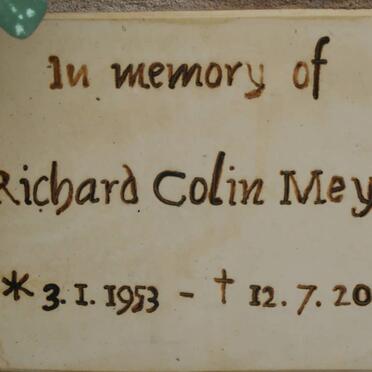 In memory of
Richard Colin Mey
* 3.1.1953 - † 12.7.20